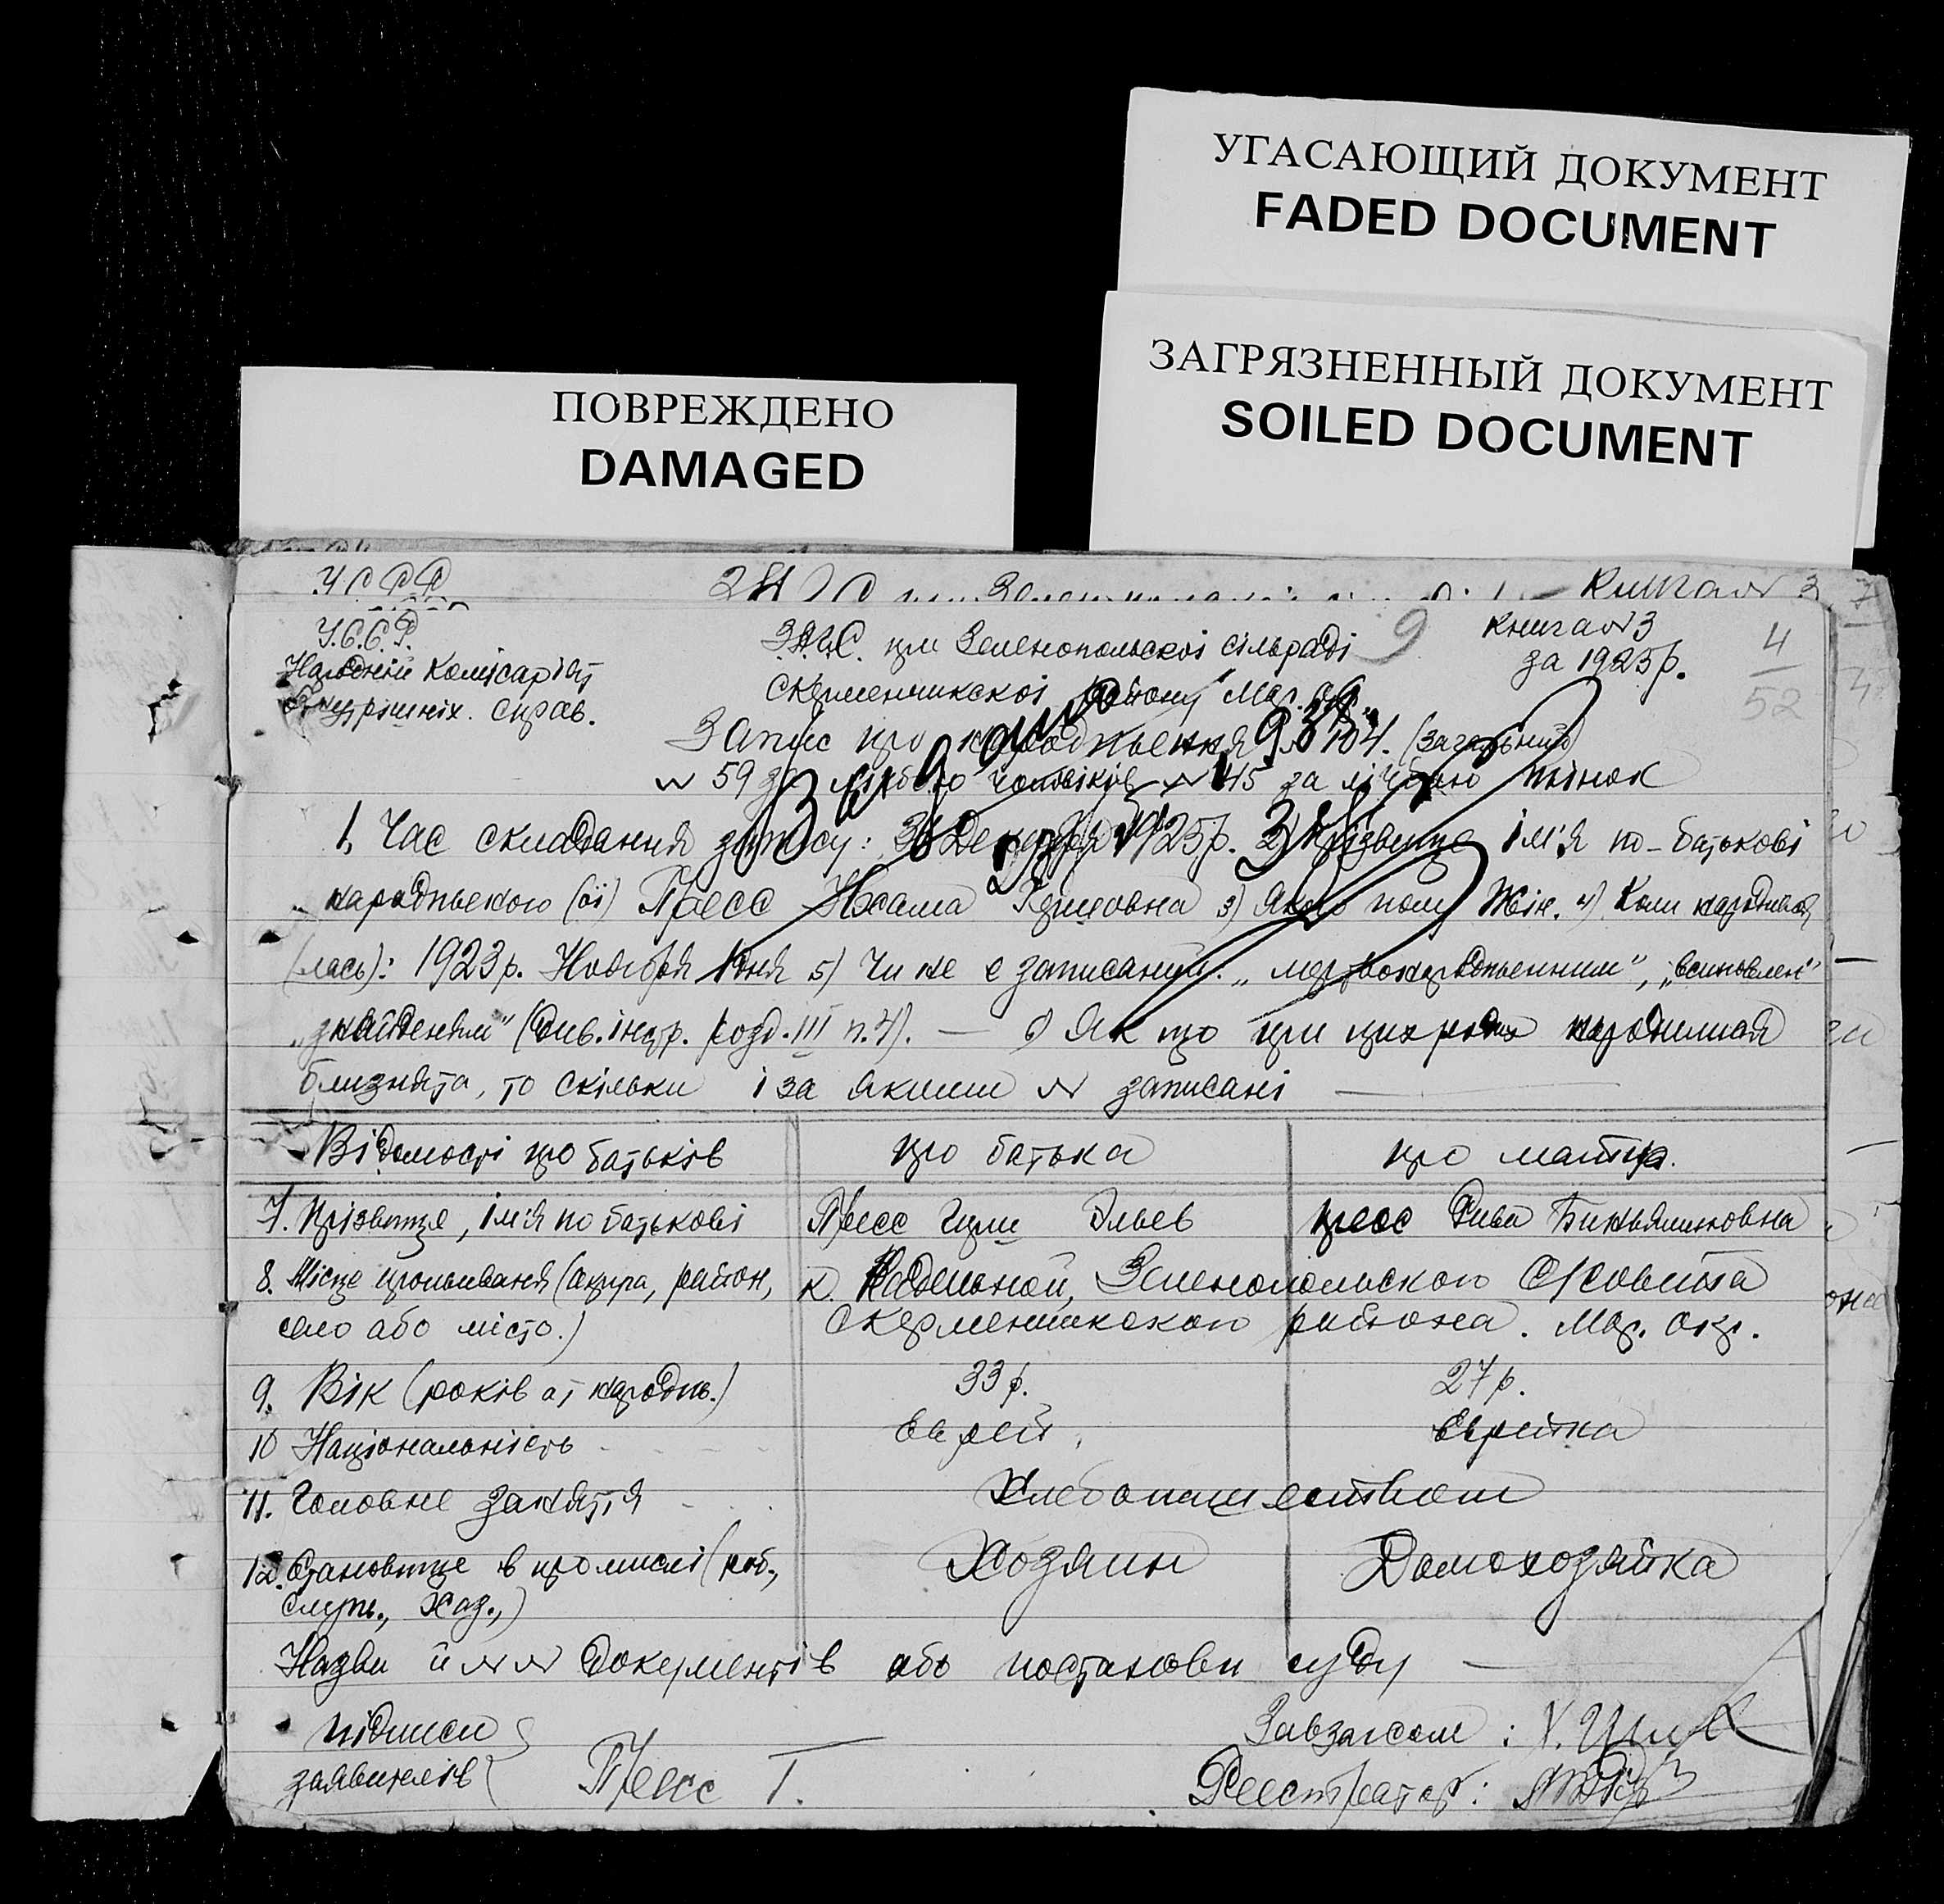 УГАСАЮЩИЙ ДОКУМЕНТ
FADED DOCUMENT
ЗАГРЯЗНЕННЫЙ ДОКУМЕНТ
SOILED DOCUMENT
ПОВРЕЖДЕНО
DAMAGED
УСРР
Книга № 3
7
У.С.С.Р.
Народній Комісаріят
Внутрішніх. Справ.
З.А.Г.С. при Зеленопольскоі сільраді
Скерменчикскоі району Мар. окр.
9
Книга № 3
за 1925р.
4
52
Запис про народження № 104. (загальний)
№ 59 за лічбою чоловіків № 45 за лічбою жінок
1. Час складання запису: Декабря 1925р. 2) Прізвище ім'я по-батькові
народженого (оі) Пресс 3) Якого полу Жін. 4) Коли народився
(лась): 1923р. Ноября 1 дня 5) Чи не є записаний: „мертвонародженним", „всиновлен"
„знайденям" (див. інстр. розд. III п. 4). — 6) Як що при цих родах народилися
близнята, то скільки і за якими № записані —
Відомості про батьків
про батька
про матір.
7. Прізвище, ім'я по батькові
Пресс Гирш Ельев
Пресс Рива Биньяминовна
8. Місце проживаня (округа, район,
село або місто.)
к. Надельной, Зеленопольского С/совета
Скерменчикского района. Мар. окр.
9. Вік (років от народж.)
33 р.
27 р.
10 Національність
Еврей
Еврейка
11. Головне заняття
Хлебопашеством
12. Становище в промислі (роб.,
служ., Хаз.,)
Хозяин
Домохозяйка
Назви й №№ документів або постанови суду —
підписи
заявителів
Пресс Г.
Завзагсом:
Реестратор: